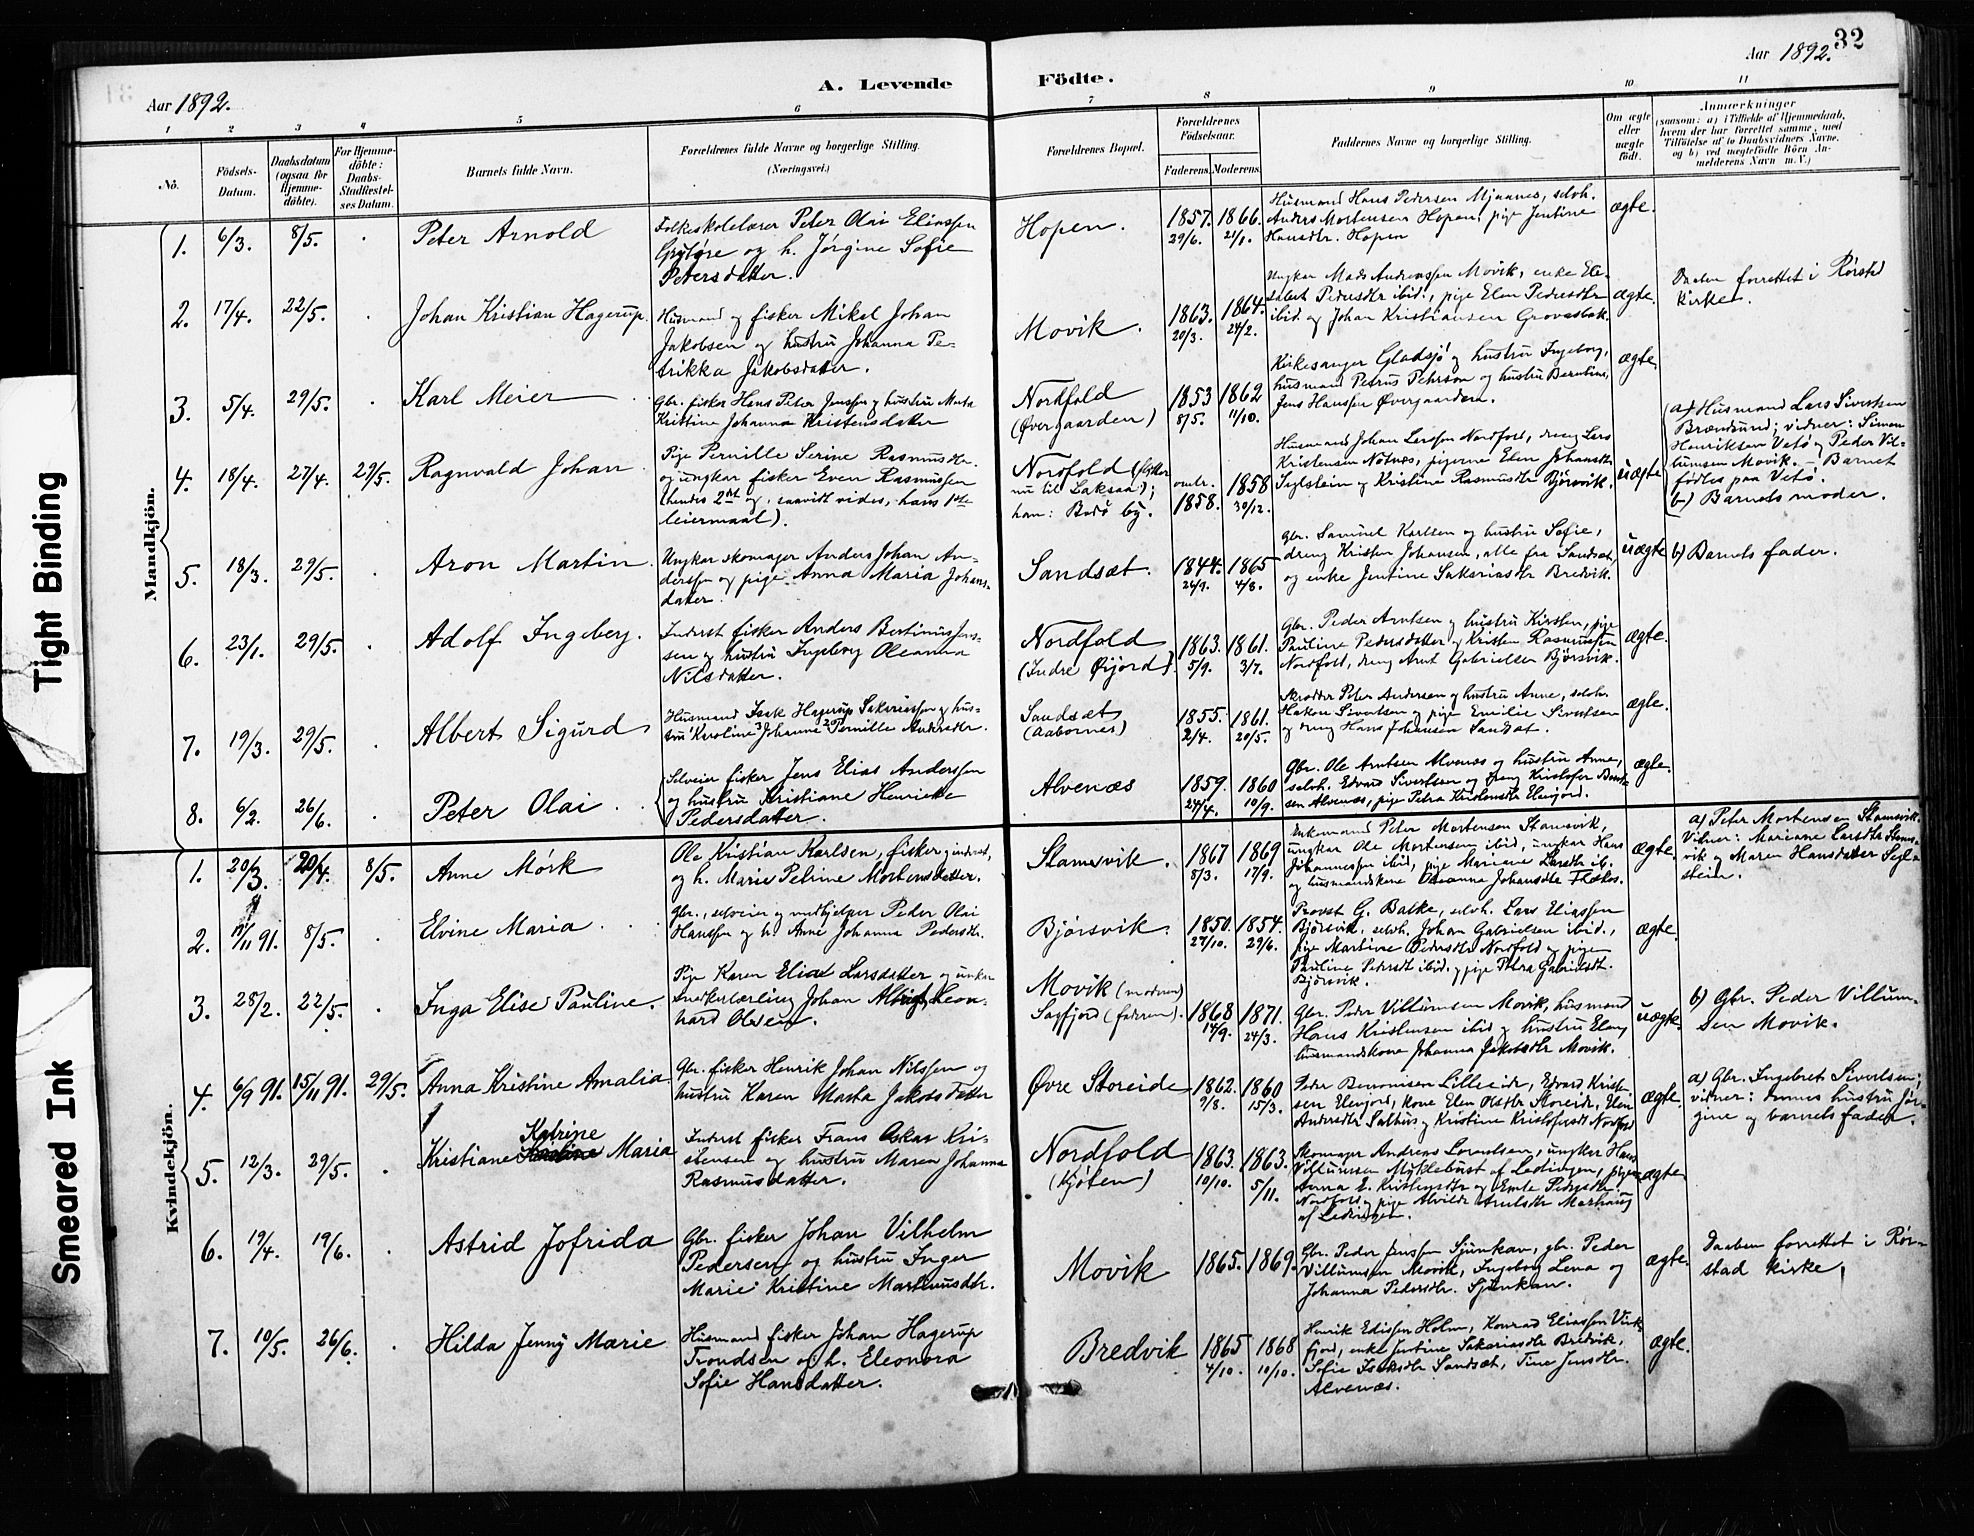 32
Aar 1892.
A. Levende
Födte.
Aar 1892.
1 2 3 4 5 6 7 8 9 10 11
No.
Födsels-
Datum.
Daabsdatum
(ogsaa for
Hjemme-
döbte).
For Hjemme-
döbte:
Daabs-
Stadfæstel-
ses Datum.
Barnets fulde Navn.
Forældrenes fulde Navne og borgerlige Stilling.
(Næringsvei.)
Forældrenes Bopæl.
Forældrenes
Födselsaar.
Faderens. Moderens.
Faddernes Navne og borgerlige Stilling.
Om ægte
eller
uægte
födt.
Anmærkninger
(saasom: a) i Tilfælde af Hjemmedaab,
hvem der har forrettet samme, med
Tilföielse af to Daabsvidners Navne.
og b) ved uægtefödte Börn An-
melderens Navn m. V.)
Mandkjön.
1. 6/3. 8/5. Peter Arnold
Folkeskolelærer Peter Olai Eliassen
Grytøre og h. Jørgine Sofie
Petersdatter.
Hopen. 1857. 29/6. 1866. 21/1.
Husmand Hans Pedersen Mjaanes, selvh.
Anders Mortensen Hopen, pige Jentine
Hansdtr. Hopen
ægte.
2. 17/4. 22/5. Johan Kristian Hagerup.
Husmand og fisker Mikal Johan
Jakobsen og hustru Johanna Pe-
trikka Jakobsdatter.
Movik. 1863. 20/3. 1864. 24/2.
Ungkar Mads Andreassen Movik, enke Ele-
sabet Pedersdtr ibid., pige Elen Pedersdtr
ibid. og Johan Kristiansen Grovasbak.
ægte.
Daaben forrettet i Rørstd
kirke.
3. 5/4. 29/5. Karl Meier
Gbr. fisker Hans Peter Jenssen og hustru Marta
Kristine Johanna Kristensdatter
Nordfold
(Øvergaarden) 1853 8/5. 1862 11/10.
Kirkesanger Gladsjø og hustru Ingeborg,
husmand Petrus Pehrson og hustru Berntine,
Jens Hanssen Øvergaarden.
ægte
4. 18/4. 27/4. 29/5. Ragnvald Johan
Pige Pernille Serine Rasmusdtr.
og ungkar fisker Even Rasmussen
(hendes 2det og, saavidt vides, hans 1ste
leiermaal).
Nordfold (flytter
nu til Laksaa);
han: Bodø by. omtr. 1858. 1858 30/12.
Husmand Johan Larssen Nordfold, dreng Lars
Kristensen Nøtnes, pigerne Elen Johansdtr
Seglstein og Kristine Rasmusdtr Bjørsvik.
uægte
a) Husmand Lars Sivertsen
Brændsund; vidner: Simon
Henriksen Vetø og Peder Vil-
lumsen Movik. – Barnet
fødtes paa Vetø.
b) Barnets moder.
5. 18/3. 29/5. Aron Martin
Ungkar skomager Anders Johan An-
derssen og pige Anna Maria Johans-
datter.
Sandsæt. 1844. 26/9. 1865 4/8.
Gbr. Samuel Karlsen og hustru Sofie,
dreng Kristen Johansen, alle fra Sandsæt,
og enke Jentine Sakriasdtr Bredvik.
uægte
b) Barnets fader.
6. 23/1. 29/5. Adolf Ingeberg.
Inderst fisker Anders Bertinus Jens-
sen og hustru Ingeborg Oleanna
Nilsdatter.
Nordfold
(Indre Øijord). 1863. 5/9. 1861. 3/7.
Gbr. Peder Arntsen og hustru Kirsten, pige
Pauline Pedersdatter og Kristen Rasmussen
Nordfold, dreng Arnt Gabrielsen Bjørsvik.
ægte.
7. 19/3. 29/5. Albert Sigurd
Husmand Isak Hagerup Sakariassen og hus-
tru Karoline Johanna Pernille Andersdtr.
Sandsæt
(Aabornes) 1855. 2/4. 1861. 20/5.
Skrædder Peter Andersen og hustru Anne, selvh.
Hakon Sivertsen og pige Emilie Sivertsen
og dreng Hans Johansen Sandsæt.
ægte.
8. 6/2. 26/6. Peter Olai
Selveier fisker Jens Elias Anderssen
og hustru Kristiane Henrikke
Pedersdatter.
Alvenæs 1859. 24/4. 1860 10/9.
Gbr. Ole Arntsen Alvenes og hustru Anne,
selvh. Edvard Sivertsen og dreng Kristofer Bent-
sen Alvenæs, pige Petra Kristensdtr Elvejord.
ægte.
Kvindekjön.
1. 20/3. 20/4. 8/5. Anne Mørk
Ole Kristian Karlsen, fisker, inderst,
og h. Marie Petrine Mortensdatter.
Stamsvik. 1867 8/3. 1869 17/9.
Enkemand Peter Mortensen Stamsvik,
ungkar Ole Mortensen ibid, ungkar Hans
Johannessen ibid, pige Mariane Larsdtr ib.
og husmandskone Oleanna Johansdtr
ægte.
a) Peter Mortensen Stamsvik.
Vidner: Mariane Larsdtr Stams-
vik og Maren Hansdatter Segl-
stein.
2. /11 91. 8/5. Elvine Maria.
Gbr., selveier og medhjelper Peder Olai
Hanssen og h. Anne Johanna Pedersdtr.
Bjørsvik. 1850. 27/10. 1854. 29/6.
Provst G. Balke, selvh. Lars Eliassen
Bjørsvik, selvh. Johan Gabrielsen ibid.,
pige Martine Pedersdtr Nordfold og pige
Pauline Pedersdt ibid. og pige Petra Gabrielsdt.
Bjørsvik.
ægte.
3. 28/2. 22/5. Inga Elise Pauline.
Pige Karen Elisa Larsdatter og unkar
snedkerlærling Johan Albrigt Leon-
hard Olsen.
Movik (moderen)
Sagfjord (faderen). 1868 14/9. 1871. 24/3.
Gbr. Peder Villumsen Movik, husmand
Hans Kristensen ibid og hustru Elen,
husmandskone Johanna Jakobsdtr Movik.
uægte.
b) Gbr. Peder Villum-
sen Movik.
4. 6/9 91. 15/11 91. 29/5. Anna Kristine Amalia
Gbr. fisker Henrik Johan Nilssen og
hustru Karen Marta Jakobsdatter
Øvre Storeide 1862. 9/8. 1860 15/3.
Peder Benonisen Lilleeide, Edvard Kristen-
sen Elvejord, kone Elen Olsdtr Storeide, Elen
Andersdtr Salhus og Kristine Kristofersdt Nordfold
ægte.
a) Gbr. Ingebret Sivertsen;
vidner: dennes hustru Jør-
gine og barnets fader.
5. 12/3. 29/5. Kristiane Katrine Maria
Inderst fisker Frans Oskar Kri-
stensen og hustru Maren Johanna
Rasmusdatter.
Nordfold
(Kjøten) 1863. 10/10. 1863. 5/11.
Skomager Andreas Lorentsen, ungkar Hans
Villumsen Myklebust af Lødingen, pigerne
Anna E. Kristensdtr og Emle Pedersdtr.
Nordfold og pige Alvilde Arntsdtr Marhaug
af Lødingen.
ægte
6. 19/4. 19/6. Astrid Jofrida
Gbr. fisker Johan Vilhelm
Pedersen og hustru Inger
Marie Kristine Martinusdtr.
Movik 1865. 1869.
Gbr. Peder Jenssen Sjunkan, gbr. Peder
Villumsen Movik, Ingeborg Lena og
Johanna Pedersdtr. Sjunkan.
ægte.
Daaben forrettet i Rør-
stad kirke.
7. 10/5. 26/6. Hilda Jenny Marie
Husmand fisker Johan Hagerup
Trondsen og h. Eleonora
Sofie Hansdatter.
Bredvik 1865 4/10. 1868 10/10.
Henrik Edissen Holm, Konrad Eliassen Vink-
fjord, enke Jentine Sakariasdtr Bredvik,
Sofie Isaksdtr Sandsæt, Tine Jensdtr.
Alvenæs.
ægte.
Tight Binding
Smeared Ink